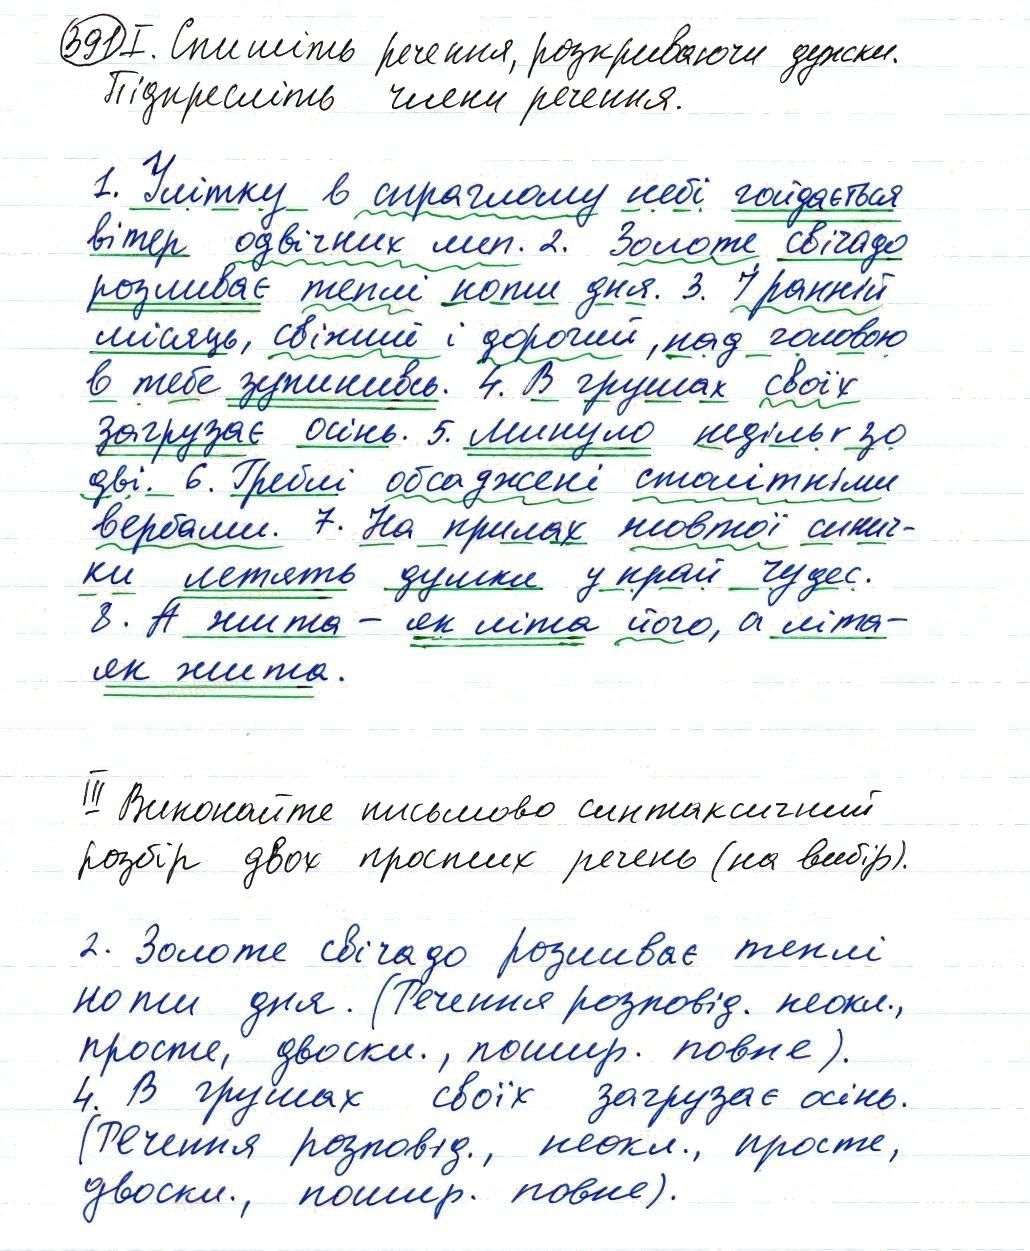 391 I. Спишіть речення, розкриваючи дужки.
Підкресліть члени речення.
1. Улітку в спраглому небі гойдається
вітер одвічних лип. 2. Золоте свічадо
розливає теплі ноти дня. 3. І ранній
місяць, свіжий і дорогий, над головою
в тебе зупинивсь. 4. В грушах своїх
загрузає осінь. 5. Минуло неділь зо
дві. 6. Греблі обсаджені столітніми
вербами. 7. На крилах жовтої синич-
ки летять думки у край чудес.
8. А жита – як літа його, а літа –
як жита.
III Виконайте письмово синтаксичний
розбір двох простих речень (на вибір).
2. Золоте свічадо розливає теплі
ноти дня. (Речення розповід. неокл.,
просте, двоскл., пошир. повне).
4. В грушах своїх загрузає осінь.
(Речення розповід., неокл., просте,
двоскл., пошир. повне).